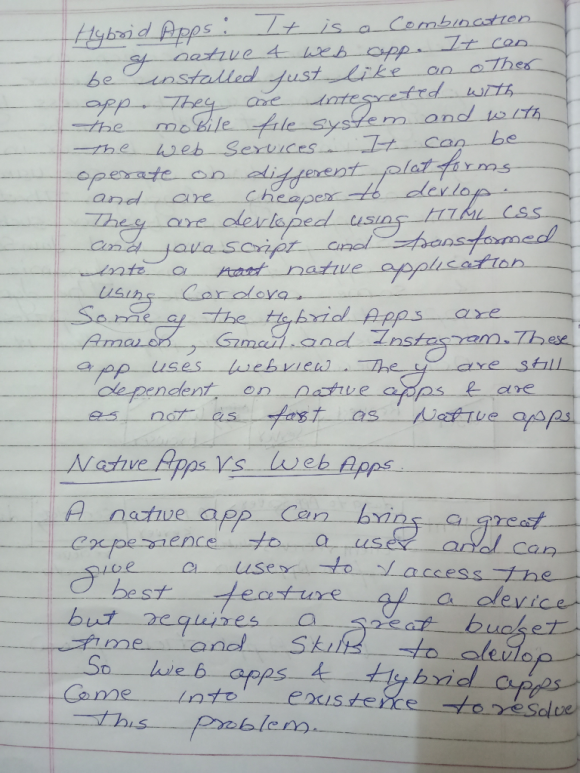 Hybrid Apps: It is a Combination
of native & web app. It can
be installed just like an other
app. They are integreted with
the mobile file system and with
the web Services. It can be
operate on different platforms
and are Cheaper to devlop.
They are devloped using HTML CSS
and javascript and transformed
into a native application
using Cordova.
Some of the Hybrid Apps are
Amazon, Gmail and Instagram. These
app uses webview. They are still
dependent on native apps & are
as not as fast as Native apps
Native Apps Vs Web Apps
A native app Can bring a great
experience to a user and can
give a user to access the
best feature of a device
but requires a great budget
time and Skills to devlop
So Web apps & Hybrid apps
Come into existence to resolve
this problem.